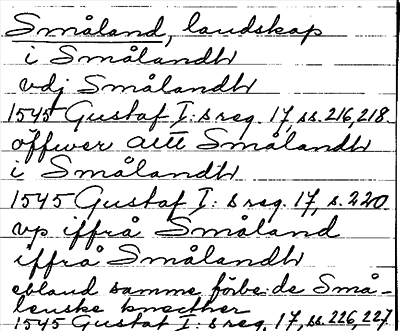 Småland, landskap
i Smålandh
vdj Smålandh
1545 Gustaf I:s reg. 17, ss. 216, 218.
öffwer alt Smålandh
i Smålandh
1545 Gustaf I:s reg. 17, s. 220
vp iffrå Småland
iffrå Smålandh
ebland samme förbe:de Små-
lenske knecther
1545 Gustaf I:s reg. 17, ss. 226, 227